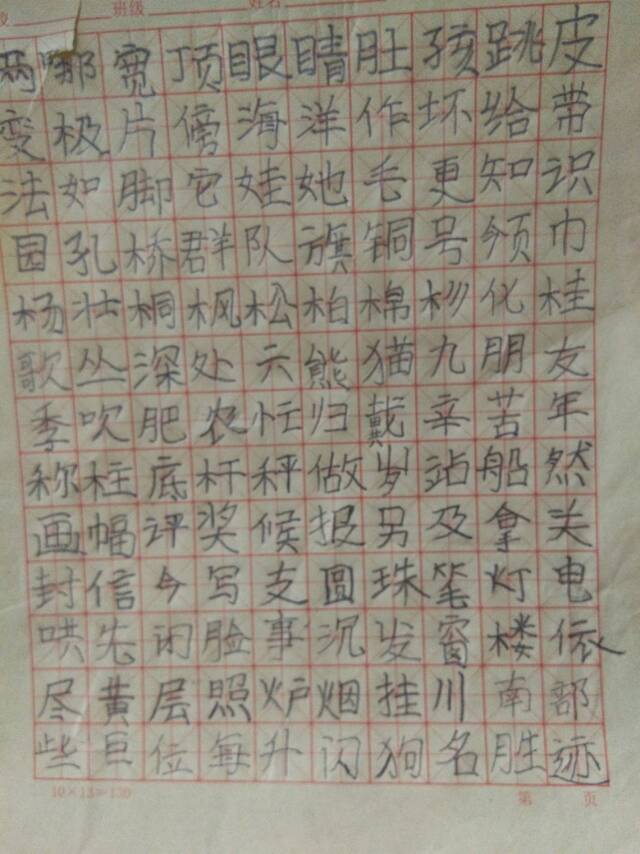 班级 姓名
两哪宽顶眼睛肚孩跳皮
变极片傍海洋作坏给带
法如脚它娃她毛更知识
园孔桥群队旗铜号领巾
杨壮桐枫松柏棉杉化桂
歌丛深处六熊猫九朋友
季吹肥农忙归戴辛苦年
称柱底杆秤做岁站船然
画幅评奖候报另及拿关
封信今写支圆珠笔灯电
哄先闭脸事沉发窗楼依
尽黄层照炉烟挂川南部
些巨位每升闪狗名胜迹
10×13=130 第 页